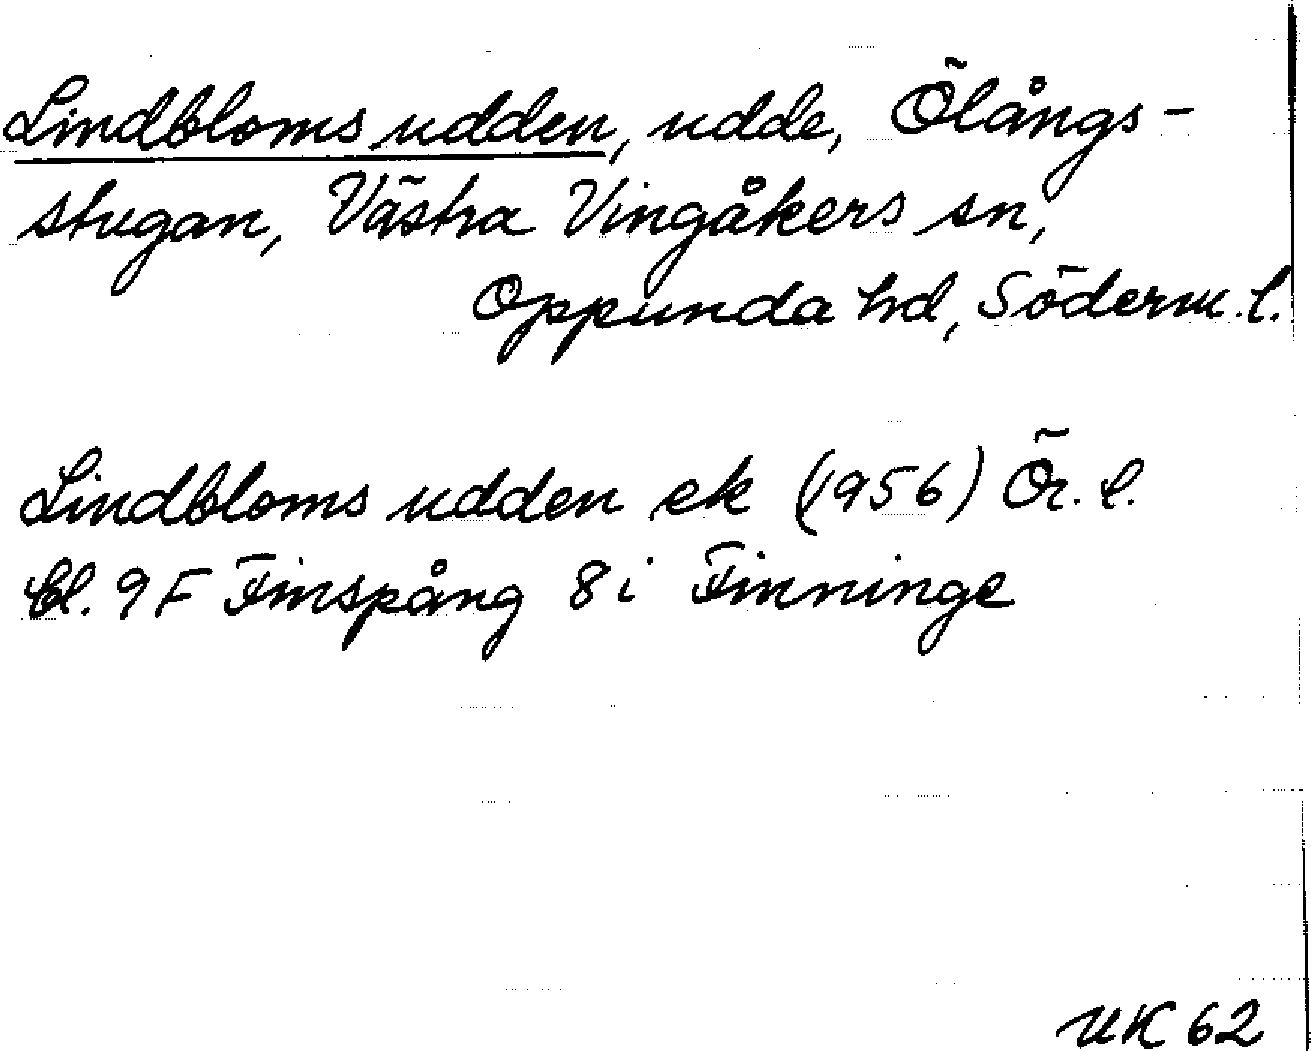 Lindbloms udden, udde, Ölångs-
stugan, Västra Vingåkers sn,
Oppunda hd, Söderm. l.
Lindbloms udden ek (1956) Ör. l.
bl. 9F Finspång 8i Finninge
UK 62